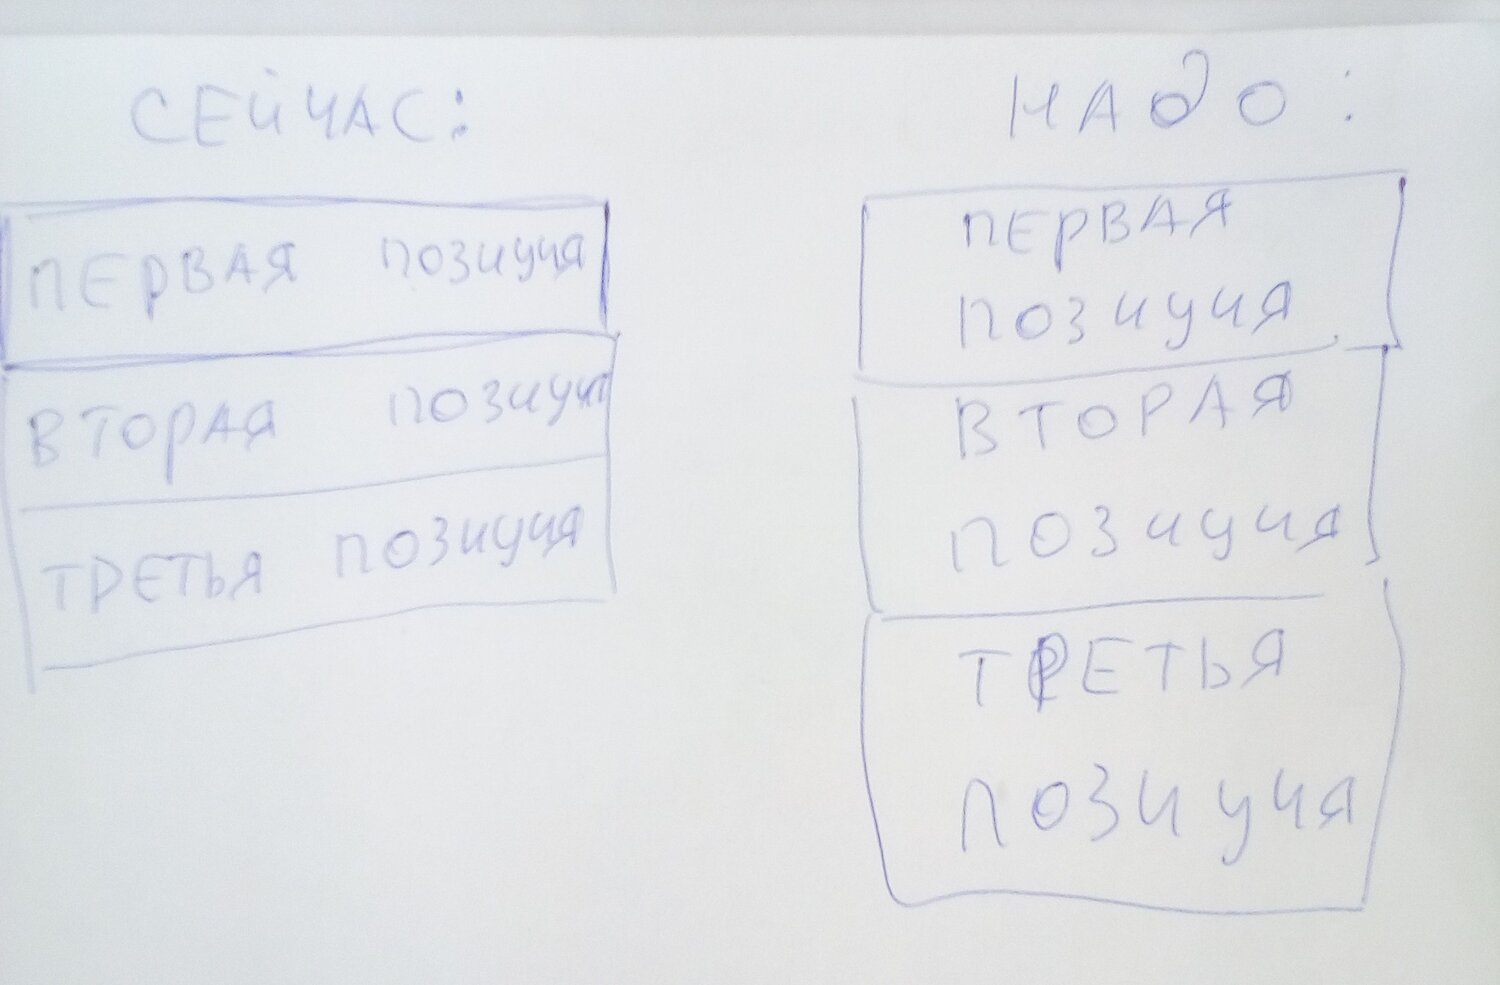 СЕЙЧАС:
ПЕРВАЯ ПОЗИЦИЯ
ВТОРАЯ ПОЗИЦИЯ
ТРЕТЬЯ ПОЗИЦИЯ
НАДО:
ПЕРВАЯ
ПОЗИЦИЯ
ВТОРАЯ
ПОЗИЦИЯ
ТРЕТЬЯ
ПОЗИЦИЯ